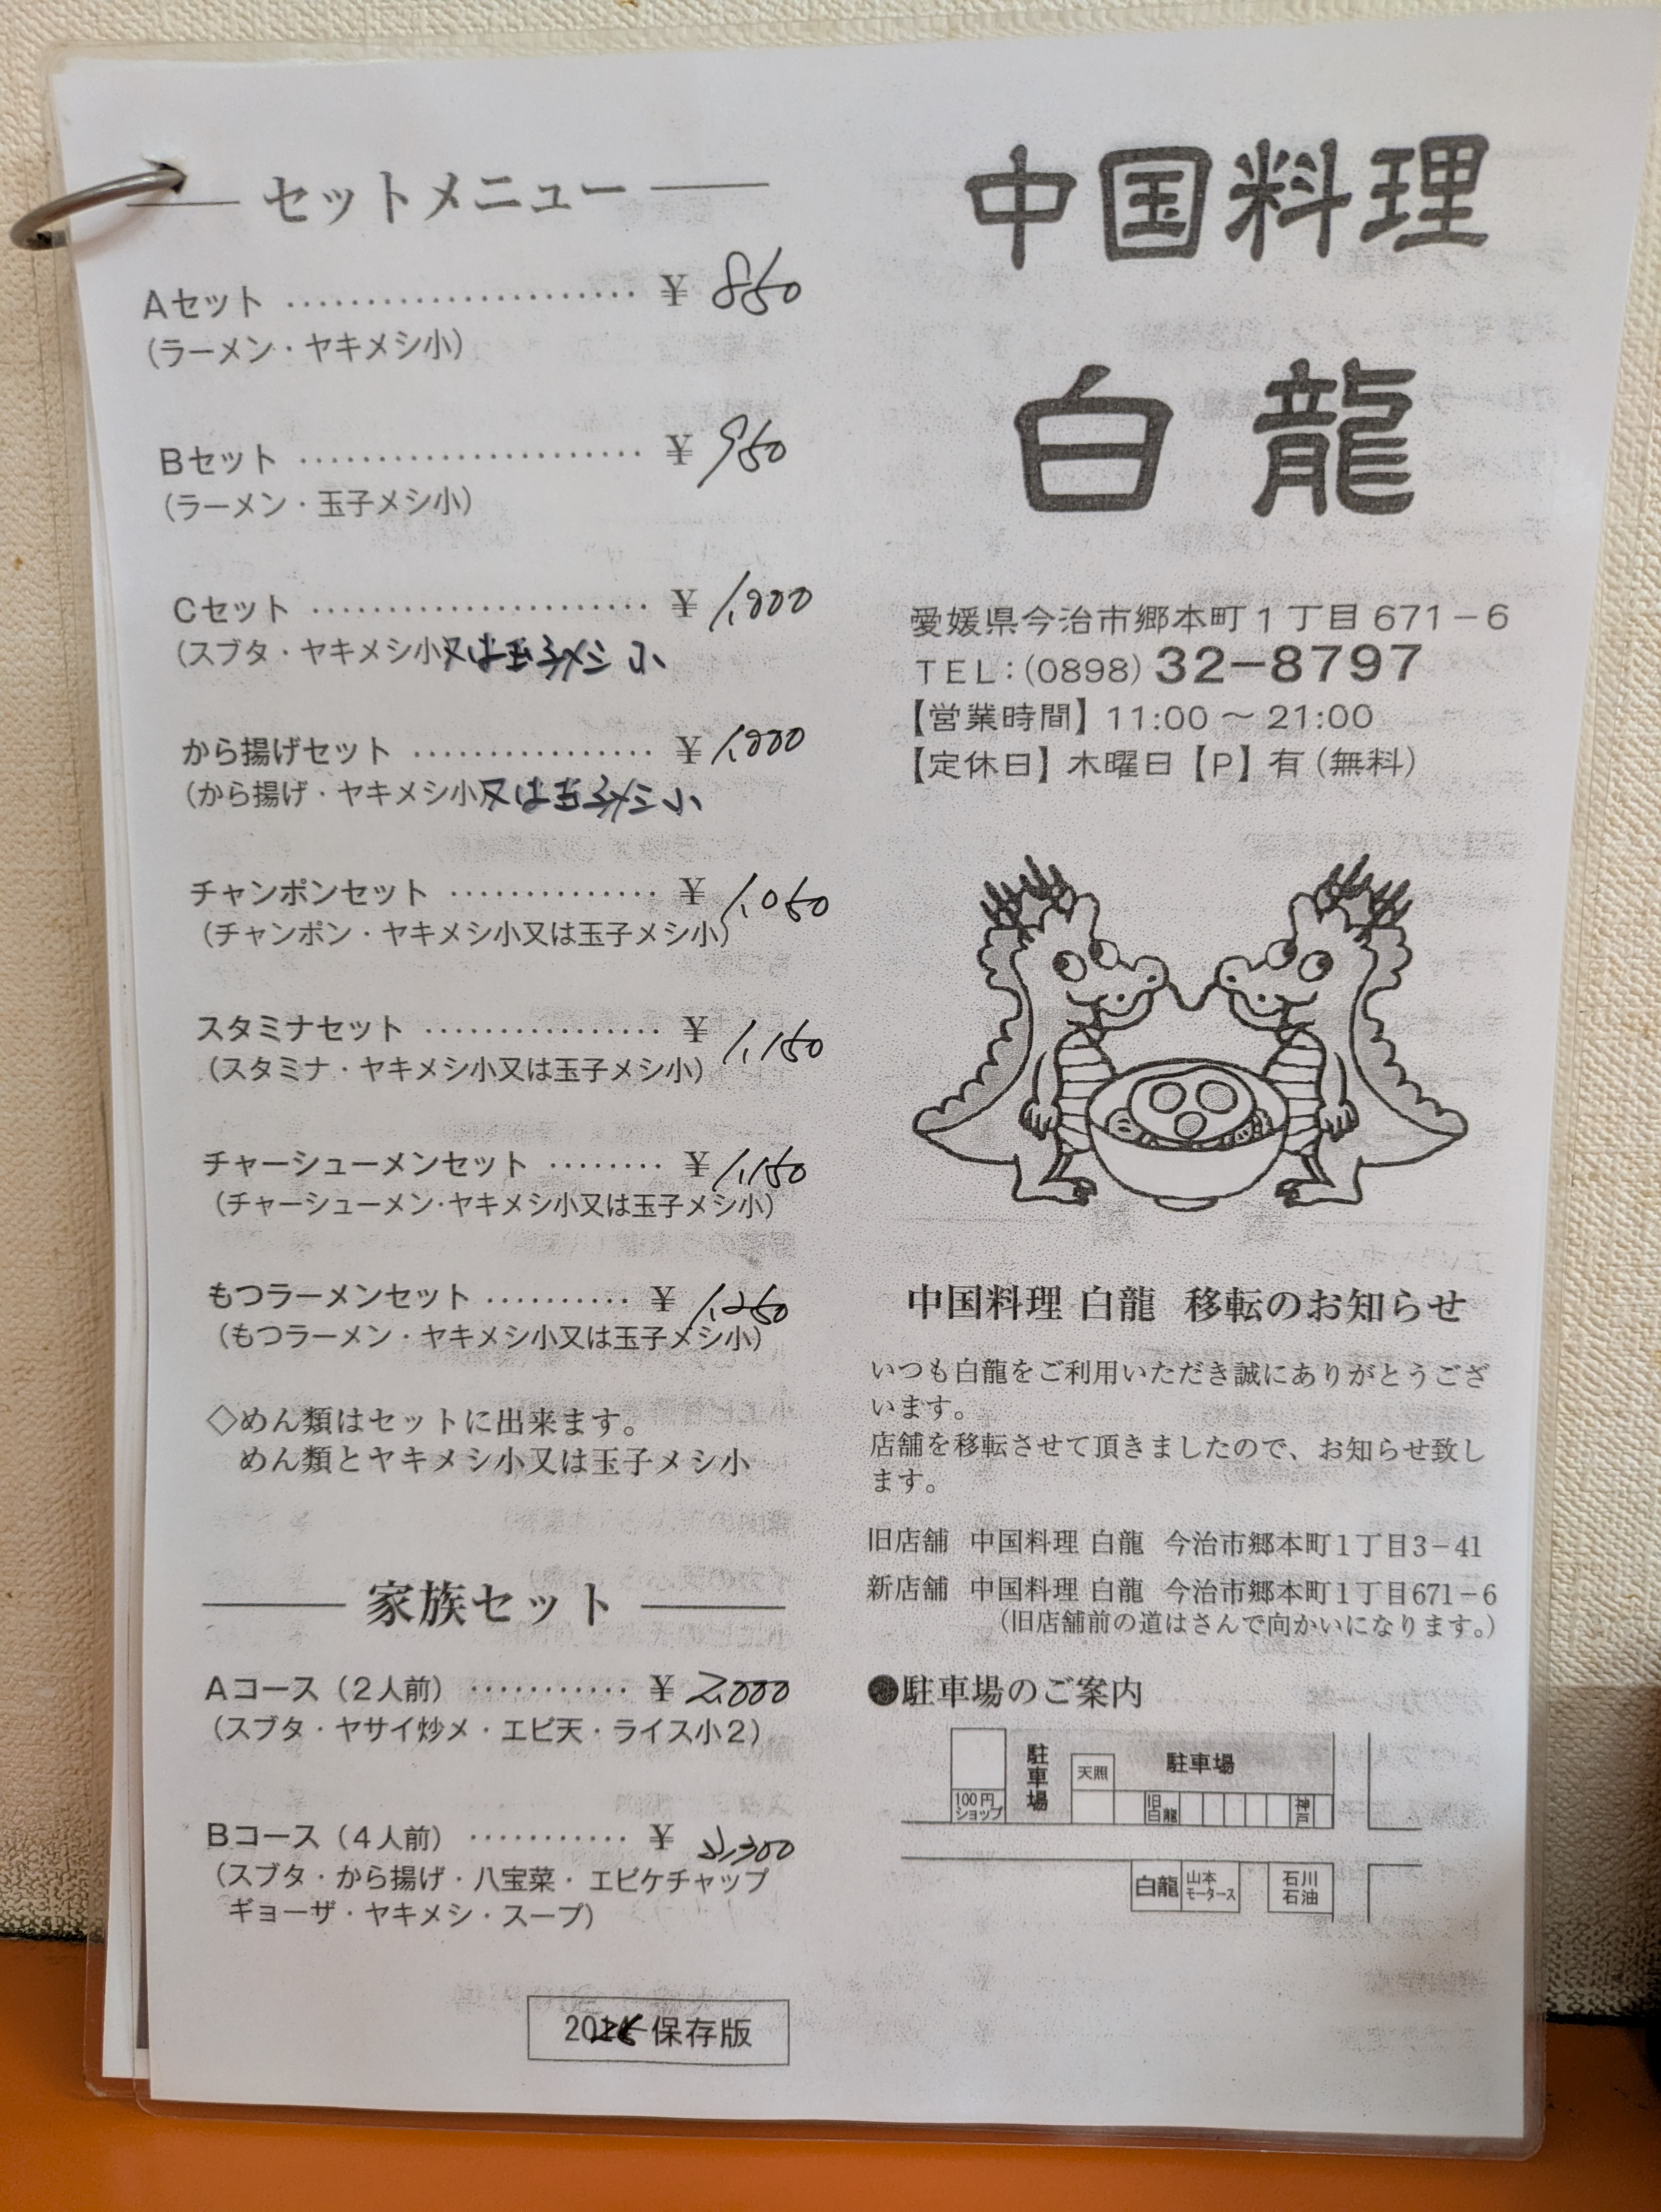 セットメニュー
Aセット ………………… ¥ 850
(ラーメン・ヤキメシ小)
Bセット ………………… ¥ 950
(ラーメン・玉子メシ小)
Cセット ………………… ¥ 1,000
(スブタ・ヤキメシ小又は玉子メシ小
から揚げセット …………… ¥ 1,000
(から揚げ・ヤキメシ小又は玉子メシ小
チャンポンセット ………… ¥ 1,050
(チャンポン・ヤキメシ小又は玉子メシ小)
スタミナセット …………… ¥ 1,150
(スタミナ・ヤキメシ小又は玉子メシ小)
チャーシューメンセット …… ¥ 1,150
(チャーシューメン・ヤキメシ小又は玉子メシ小)
もつラーメンセット ……… ¥ 1,250
(もつラーメン・ヤキメシ小又は玉子メシ小)
◇めん類はセットに出来ます。
めん類とヤキメシ小又は玉子メシ小
家族セット
Aコース(2人前) ………… ¥ 2,000
(スブタ・ヤサイ炒メ・エビ天・ライス小2)
Bコース(4人前) ………… ¥
(スブタ・から揚げ・八宝菜・エビケチャップ
ギョーザ・ヤキメシ・スープ)
保存版
中国料理
白龍
愛媛県今治市郷本町1丁目671-6
TEL:(0898)32-8797
【営業時間】11:00～21:00
【定休日】木曜日【P】有(無料)
中国料理 白龍 移転のお知らせ
いつも白龍をご利用いただき誠にありがとうござ
います。
店舗を移転させて頂きましたので、お知らせ致し
ます。
旧店舗 中国料理 白龍 今治市郷本町1丁目3-41
新店舗 中国料理 白龍 今治市郷本町1丁目671-6
(旧店舗前の道はさんで向かいになります。)
●駐車場のご案内
100円
ショップ
駐車場
天照
駐車場
旧
白龍
神戸
白龍
山本
モータース
石川
石油